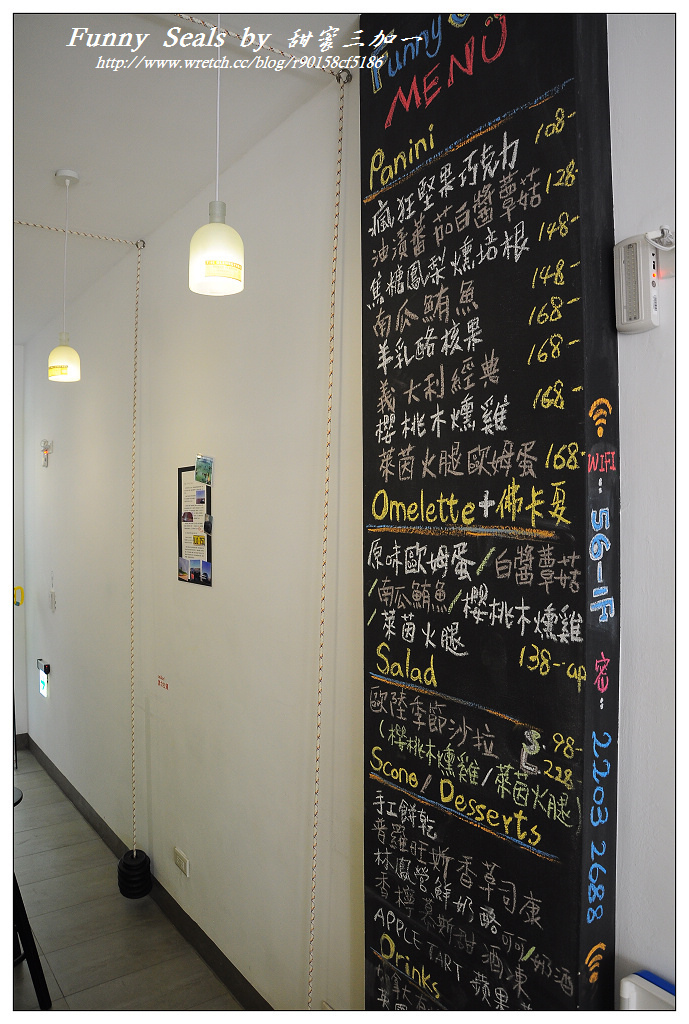 Funny Seals by 甜蜜三加一
http://www.wretch.cc/blog/r90158cf5186
Funny
MENU
Panini
瘋狂堅果巧克力 108-
油漬番茄白醬蕈菇 128-
焦糖鳳梨燻培根 148-
南瓜鮪魚 148-
羊乳酪核果 168-
義大利經典 168-
櫻桃木燻雞 168-
萊茵火腿歐姆蛋 168-
Omelette+佛卡夏
原味歐姆蛋/白醬蕈菇
/南瓜鮪魚/櫻桃木燻雞
/萊茵火腿 138-up
Salad
歐陸季節沙拉 S. 98-
L 228-
(櫻桃木燻雞/萊茵火腿)
Scone/Desserts
手工餅乾
普羅旺斯香草司康
林鳳營鮮奶酪 可可/奶酒
香檸慕斯甜酒凍
APPLE TART 蘋果
Drinks
WIFI
: 56-1F
密:
2203 2688